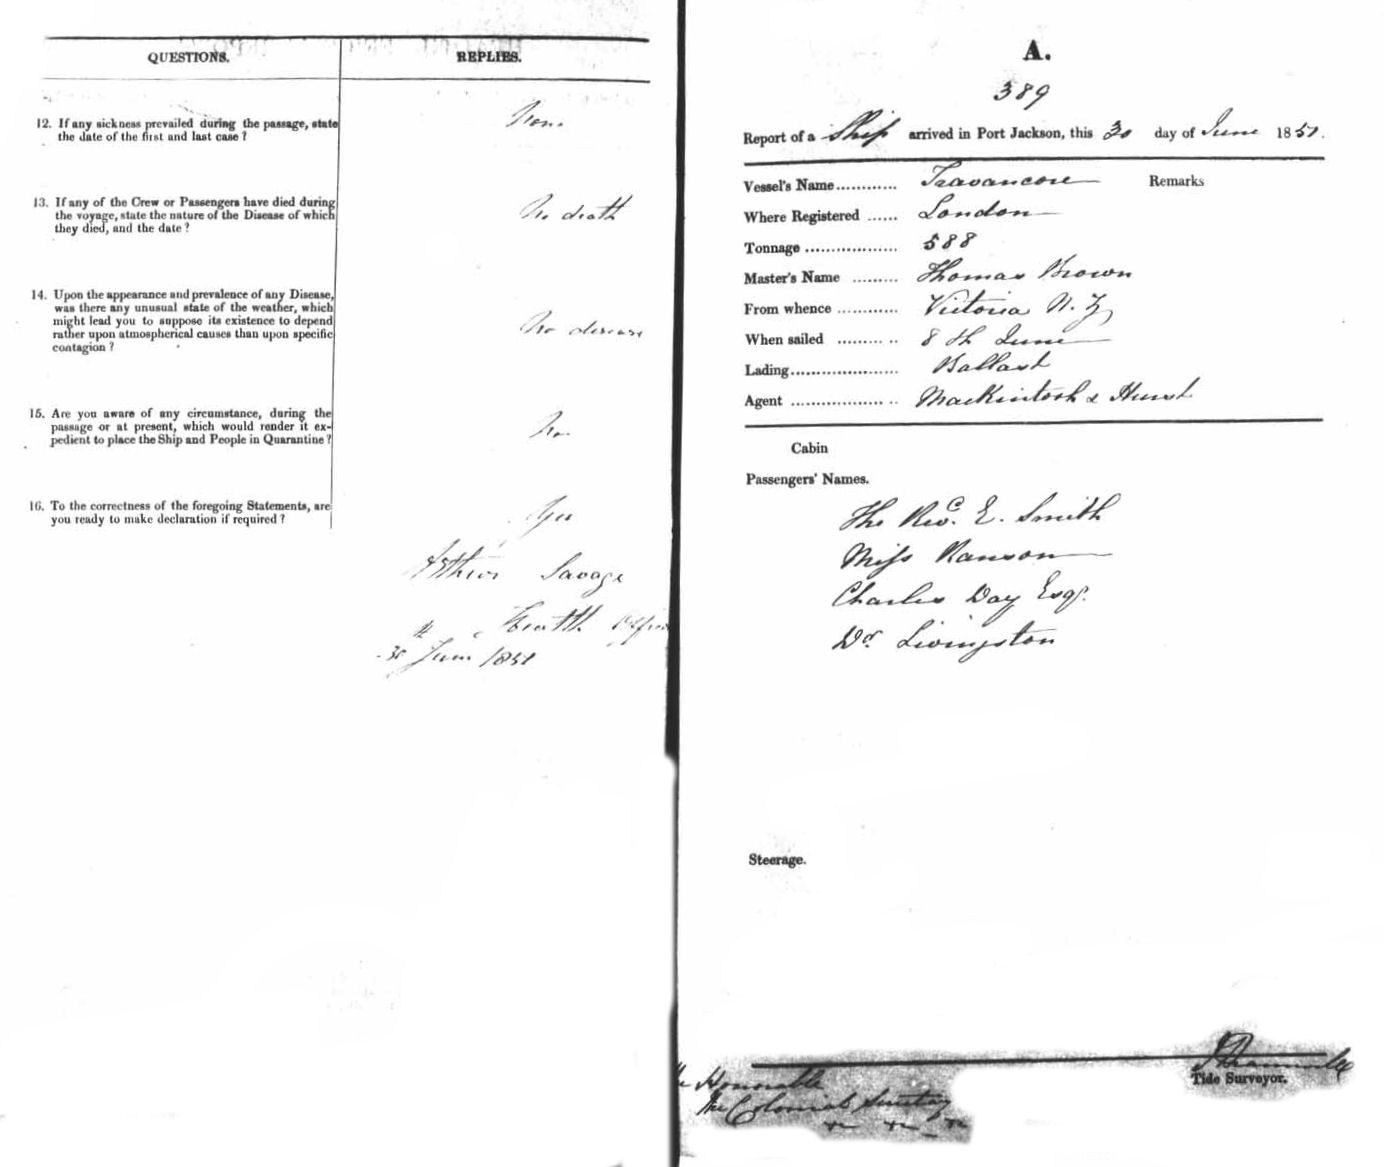 QUESTIONS. REPLIES.
12. If any sickness prevailed during the passage, state
the date of the first and last case ?
None
13. If any of the Crew or Passengers have died during
the voyage, state the nature of the Disease of which
they died, and the date ?
No death
14. Upon the appearance and prevalence of any Disease,
was there any unusual state of the weather, which
might lead you to suppose its existence to depend
rather upon atmospherical causes than upon specific
contagion ?
No disease
15. Are you aware of any circumstance, during the
passage or at present, which would render it ex-
pedient to place the Ship and People in Quarantine ?
No.
16. To the correctness of the foregoing Statements, are
you ready to make declaration if required ?
Yes
Arthur Savage
Health Officer
30th June 1851
A.
389
Report of a Ship arrived in Port Jackson, this 30 day of June 1851.
Vessel's Name............ Travancore Remarks
Where Registered ...... London
Tonnage .................. 588
Master's Name ......... Thomas Brown
From whence ............ Victoria N. Z
When sailed ......... .. 8th June
Lading..................... Ballast
Agent .................. .. Mackintosh & Hirst
Cabin
Passengers' Names.
The Revd. E. Smith
Miss Ranson
Charles Day Esqr.
Dr. Livingston
Steerage.
Tide Surveyor.
The Honorable
The Colonial Secretary